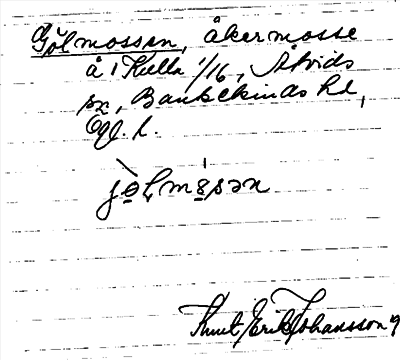 Gölmossen, åkermosse
å 1 Kulla 1/16, Åtvids
sn, Bankekinds hd,
Ögl. l.
jö̀l̥mosən
Knut Erik Johansson